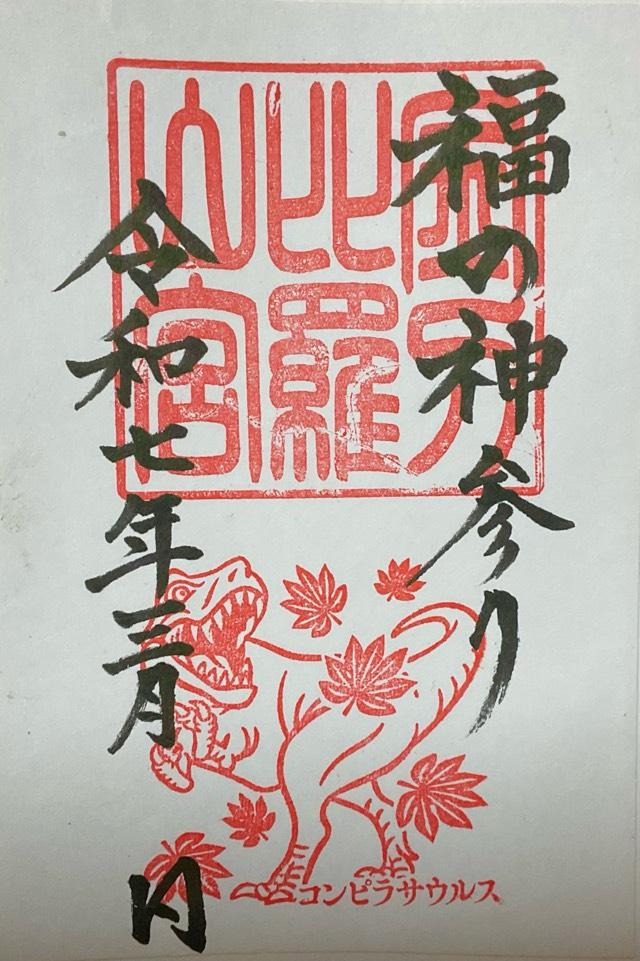 福の神参り
金刀
比羅
宮
令和七年三月 日
コンピラサウルス